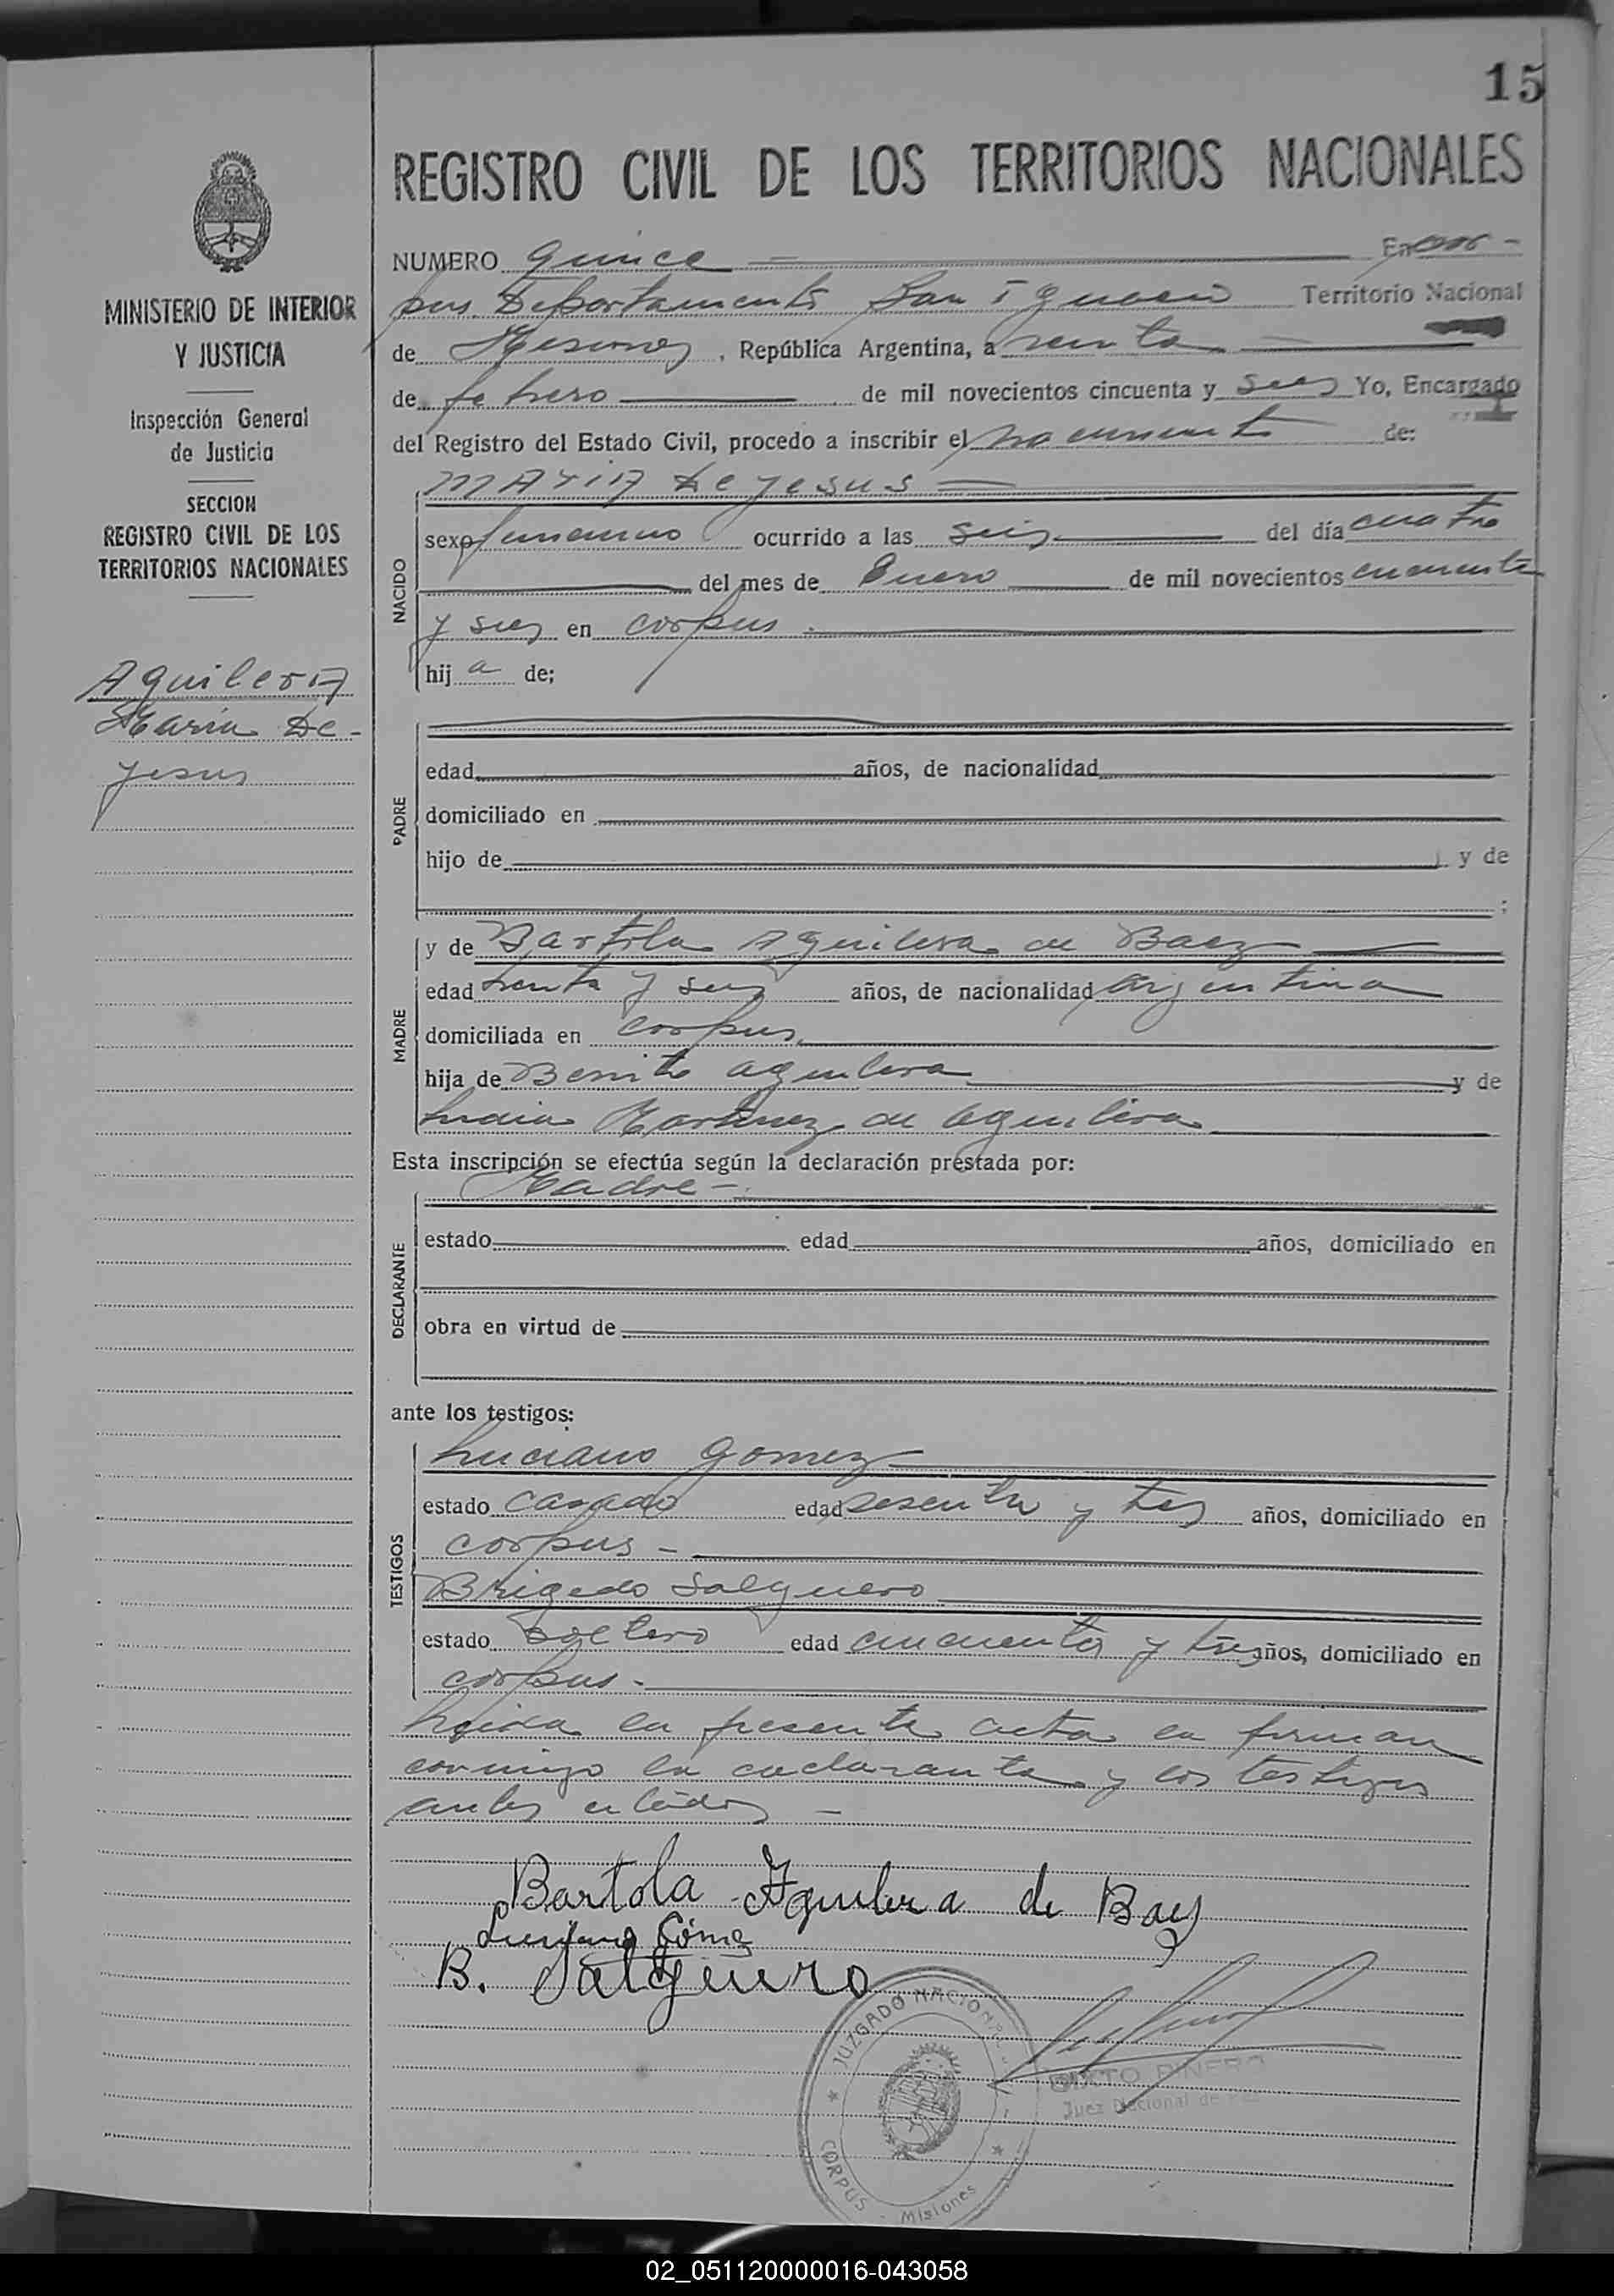 15
REGISTRO CIVIL DE LOS TERRITORIOS NACIONALES
MINISTERIO DE INTERIOR
Y JUSTICIA
Inspección General
de Justicia
SECCION
REGISTRO CIVIL DE LOS
TERRITORIOS NACIONALES
Aguilera
Maria De
Jesus
NUMERO quince En Cor-
pus Departamento San Ignacio Territorio Nacional
de Misiones, República Argentina, a
de febrero de mil novecientos cincuenta y seis Yo, Encargado
del Registro del Estado Civil, procedo a inscribir el nacimiento de:
NACIDO
Maria De Jesus
sexo femenino ocurrido a las seis del día cuatro
del mes de Enero de mil novecientos cincuenta
y seis en corpus
hij a de;
PADRE
edad años, de nacionalidad
domiciliado en
hijo de y de
;
MADRE
y de Bartola Aguilera de Baez
edad treinta y seis años, de nacionalidad argentina
domiciliada en corpus
hija de Benito aguilera y de
Martinez de aguilera
Esta inscripción se efectúa según la declaración prestada por:
DECLARANTE
Madre -
estado edad años, domiciliado en
obra en virtud de
ante los testigos:
TESTIGOS
Luciano gomez
estado casado edad sesenta y tres años, domiciliado en
corpus -
Brigedo Salguero
estado soltero edad cincuenta y tres años, domiciliado en
corpus -
la presente acta la firman
conmigo la declarante y los testigos
antes citados -
Bartola Aguilera de Baez
Luciano Gómez
B. Salguero
JUZGADO NACIONAL
CORPUS - Misiones
SIXTO PIÑERO
Juez Nacional de Paz
02_051120000016-043058